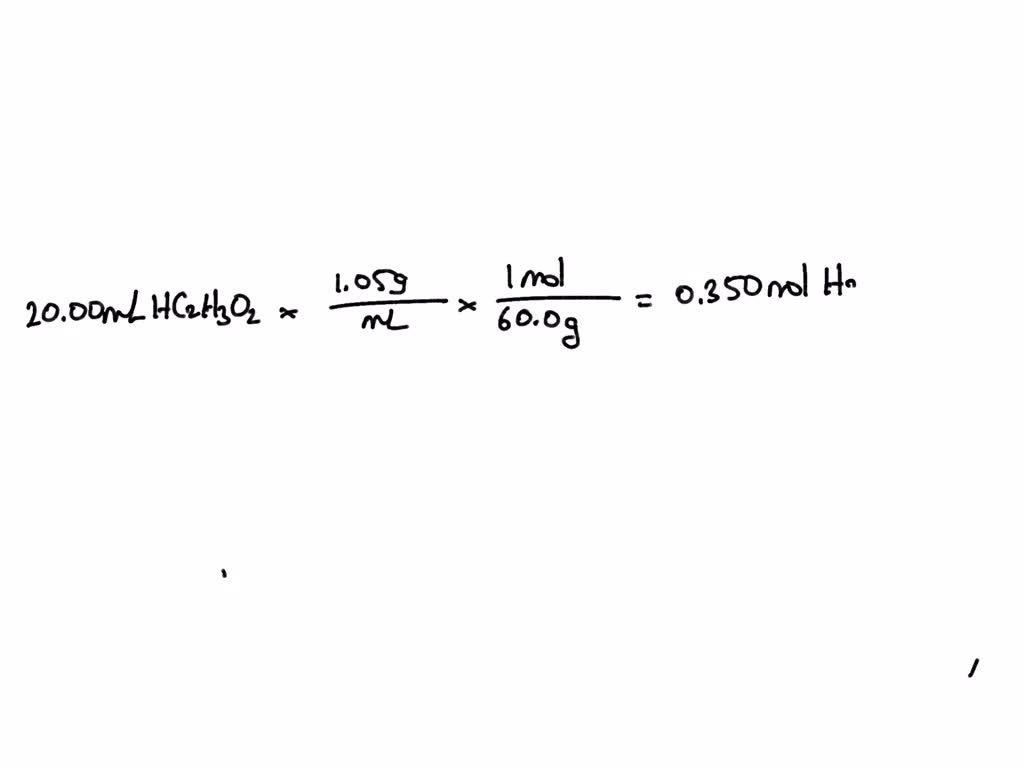 20.00mL HC₂H₃O₂ × 1.05g/mL × 1 mol/60.0g = 0.350 mol Hn